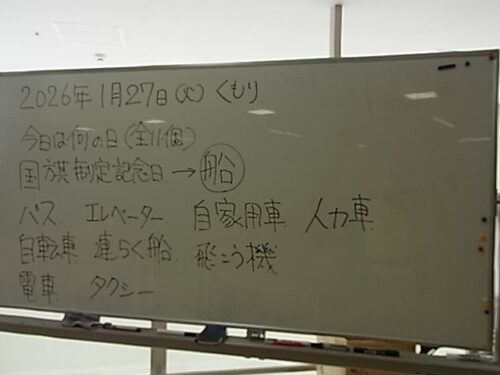 2026年1月27日(火) くもり
今日は何の日(全11個)
国旗制定記念日→船
バス エレベーター 自家用車 人力車
自転車 連らく船 飛こう機
電車 タクシー